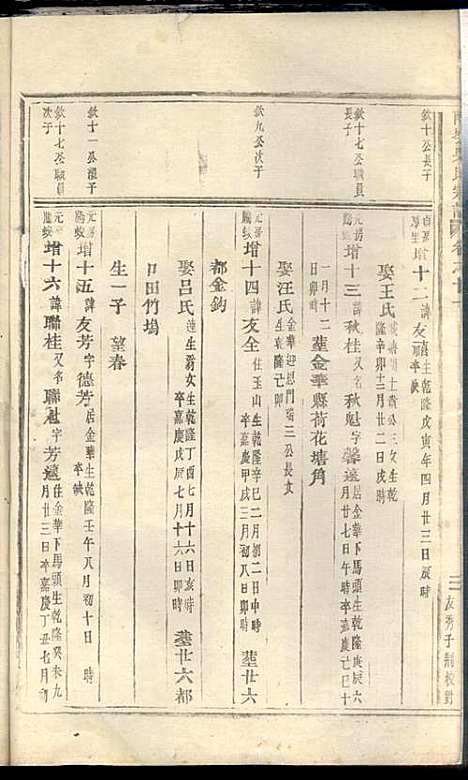 欽十公長子
增十二諱友禧生乾隆戊寅年四月廿三日辰時
卒缺
娶王氏
公三女生乾
隆辛卯十二月廿二日戌時
欽十七公職員
長子
增十三諱秋桂又名秋魁字馨遠
生乾隆庚辰六
月廿七日午時卒嘉慶己巳十
一月十二
日卯時
塟金華縣荷花塘角
娶汪氏金華迎恩門瑞三公長女
生乾隆己卯
欽九公次子
元房
增十四諱友全住玉山生乾隆辛巳二月初二日中時
卒嘉慶甲戌三月初八日卯時
塟廿六
都金鈎
娶呂氏蓮生
女生乾隆丁酉七月十六日亥時
卒嘉慶戊辰七月十六日卯時
塟廿六都
口田竹塢
生一子 望春
欽十一公
子
元房
增十五諱友芳字德芳居金華生乾隆壬午八月初十日 時
卒缺
欽十七公職員
次子
元房
增十六諱聯桂又名聯魁字芳遠住金華下馬頭生乾隆癸未九
月廿三日卒嘉慶丁丑七月初
三
友秀子制校對